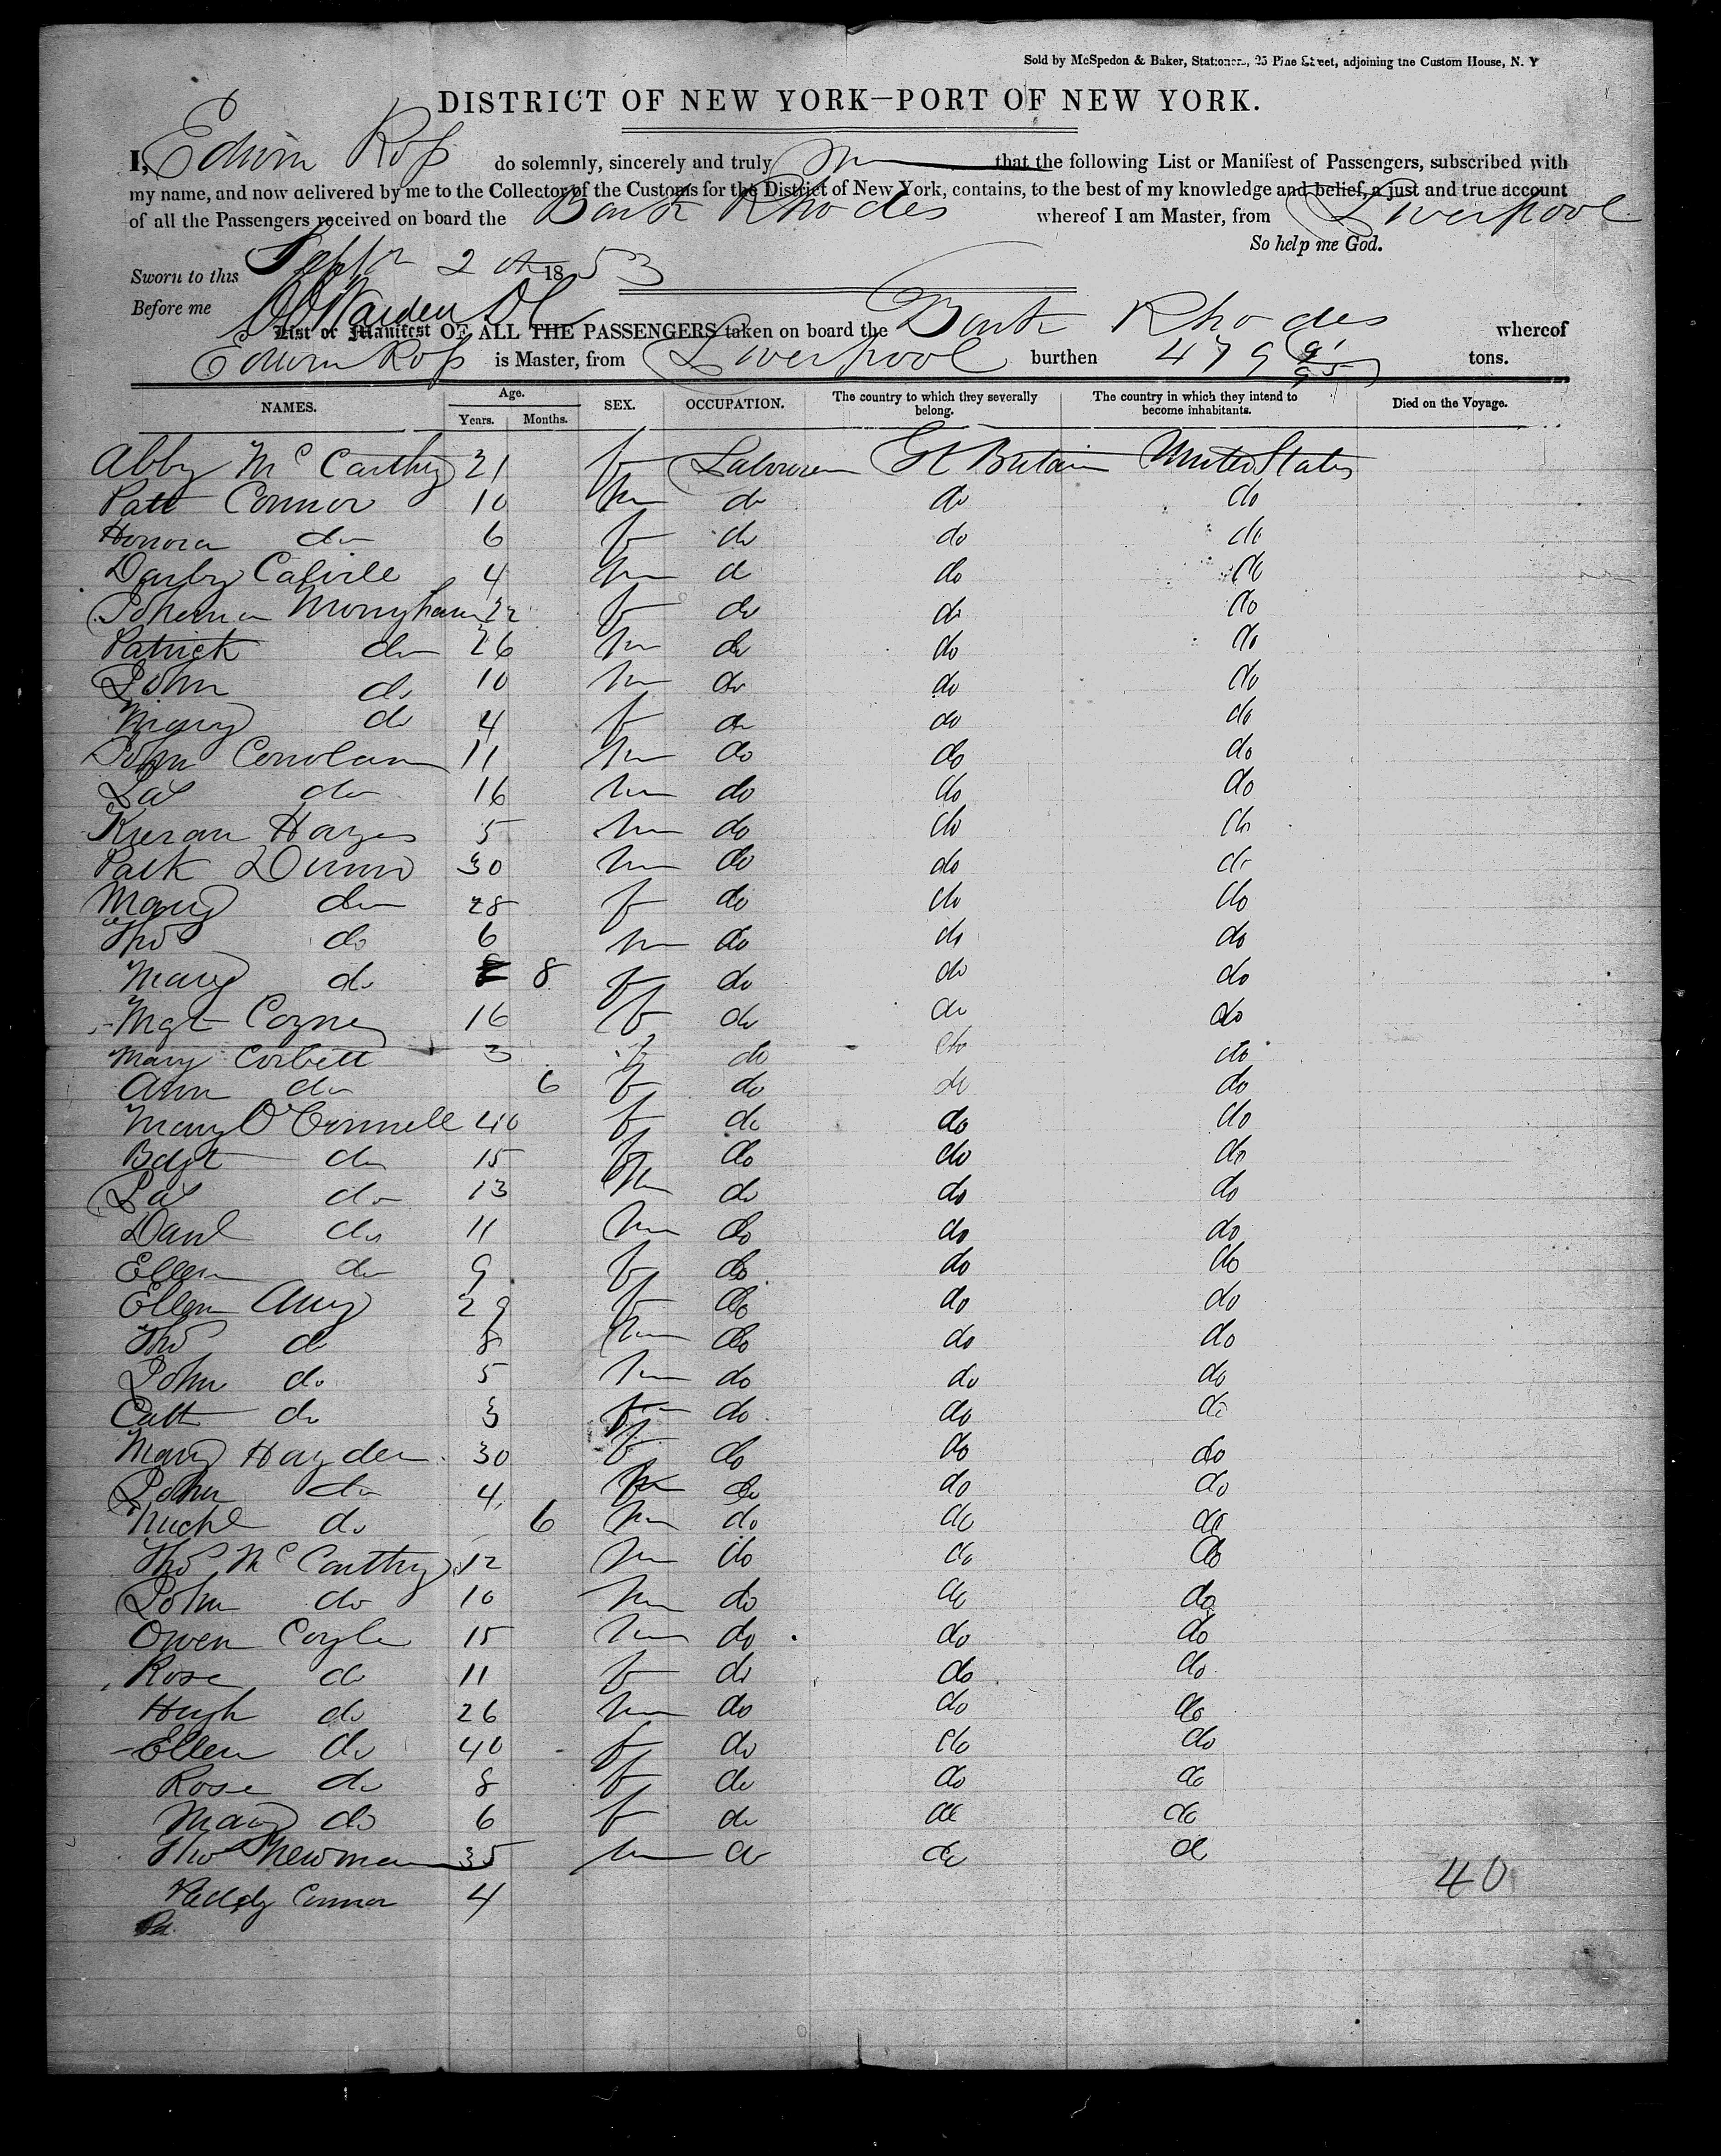 Sold by McSpedon & Baker, Stationers, 25 Pine Street, adjoining the Custom House, N. Y
DISTRICT OF NEW YORK—PORT OF NEW YORK.
I, Edwin Ross do solemnly, sincerely and truly that the following List or Manifest of Passengers, subscribed with
my name, and now delivered by me to the Collector of the Customs for the District of New York, contains, to the best of my knowledge and belief, a just and true account
of all the Passengers received on board the Bark Rhodes whereof I am Master, from Liverpool
So help me God.
Sworn to this Septr 2 1853
Before me
List or Manifest OF ALL THE PASSENGERS taken on board the Bark Rhodes whereof
Edwin Ross is Master, from Liverpool burthen 479 91/95 tons.
NAMES. Age. Years. Months. SEX. OCCUPATION. The country to which they severally belong. The country in which they intend to become inhabitants. Died on the Voyage.
Abby McCarthy 21 f Labourer Gt Britain United States
Patt Connor 10 m do do do
Honora do 6 f do do do
Darby 4 m do do do
22 f do do do
Patrick do 26 m do do do
John do 10 m do do do
Mary do 4 f do do do
John Conolan 11 m do do do
do 16 m do do do
Kieran Hayes 5 m do do do
Patk Dunn 30 m do do do
Mary do 28 f do do do
Thos do 6 m do do do
Mary do 8 f do do do
Mgt Coyne 16 f do do do
Mary Corbett 3 f do do do
Ann do 6 f do do do
Mary O'Connell 40 f do do do
Bdgt do 15 f do do do
do 13 m do do do
Danl do 11 m do do do
Ellen do 9 f do do do
Ellen 29 f do do do
Thos do 8 m do do do
John do 5 m do do do
Cath do 3 f do do do
Mary Hayden 30 f do do do
John do 4 m do do do
Michl do 6 m do do do
Thos McCarthy 12 m do do do
John do 10 m do do do
Owen Coyle 15 m do do do
Rose do 11 f do do do
Hugh do 26 m do do do
Ellen do 40 f do do do
Rose do 8 f do do do
Mary do 6 f do do do
Thos Newman 35 m do do do
40
Paddy Connor 4